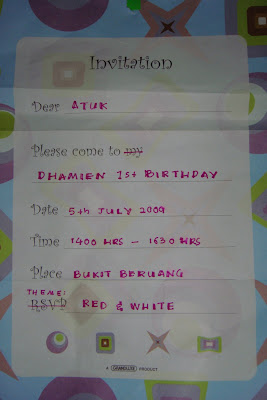 Invitation
Dear ATUK
Please come to my
DHAMIEN 1st BIRTHDAY
Date 5th JULY 2009
Time 1400 HRS - 1630 HRS
Place BUKIT BERUANG
THEME:
RSVP RED & WHITE
A GRANDLUXE PRODUCT